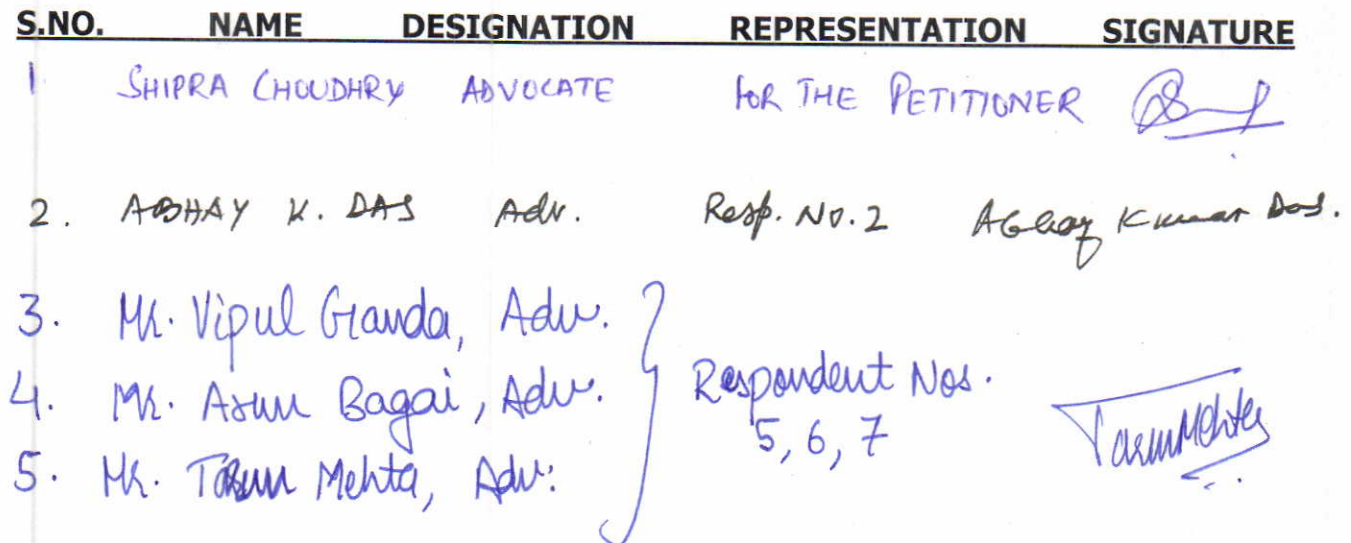 S.NO. NAME DESIGNATION REPRESENTATION SIGNATURE
1 SHIPRA CHOUDHRY ADVOCATE FOR THE PETITIONER
2. ABHAY K. DAS Adv. Resp. No. 2 Abhay Kumar Das.
3. Mr. Vipul Ganda, Adv.
4. Mr. Arun Bagai, Adv.
Respondent Nos. 5, 6, 7
5. Mr. Tarun Mehta, Adv. Tarun Mehta